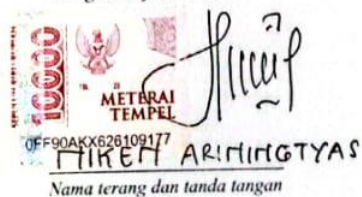 10000
METERAI
TEMPEL
0FF90AKX626109177
NIKEN ARININGTYAS
Nama terang dan tanda tangan